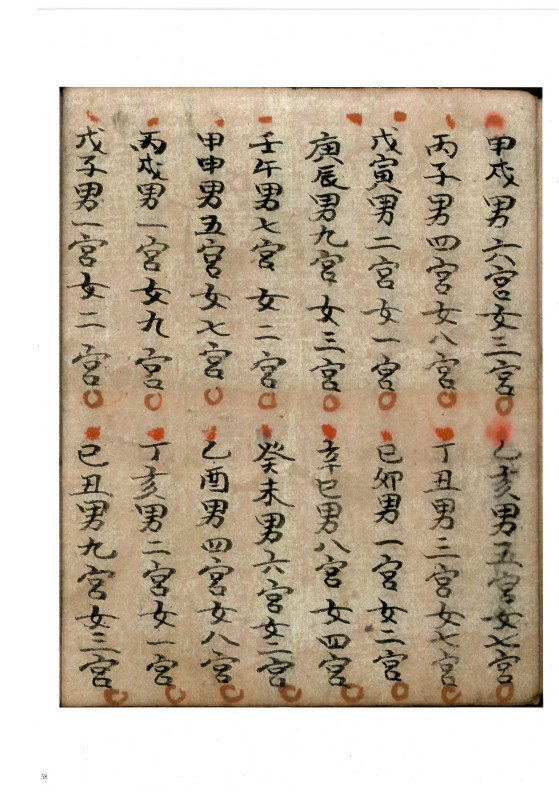 甲戌男六宮女三宮
乙亥男五宮女七宮
丙子男四宮女八宮
丁丑男三宮女七宮
戊寅男二宮女一宮
己卯男一宮女二宮
庚辰男九宮女三宮
辛巳男八宮女四宮
壬午男七宮女二宮
癸未男六宮女二宮
甲申男五宮女七宮
乙酉男四宮女八宮
丙戌男一宮女九宮
丁亥男二宮女一宮
戊子男一宮女二宮
己丑男九宮女三宮
58